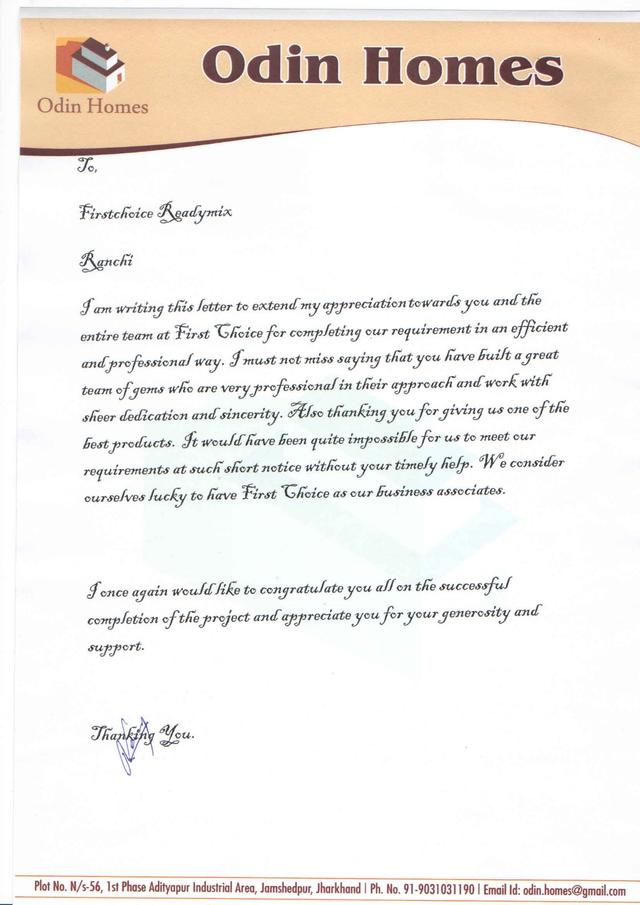 Odin Homes
Odin Homes
To,
Firstchoice Readymix
Ranchi
I am writing this letter to extend my appreciation towards you and the
entire team at First Choice for completing our requirement in an efficient
and professional way. I must not miss saying that you have built a great
team of gems who are very professional in their approach and work with
sheer dedication and sincerity. Also thanking you for giving us one of the
best products. It would have been quite impossible for us to meet our
requirements at such short notice without your timely help. We consider
ourselves lucky to have First Choice as our business associates.
I once again would like to congratulate you all on the successful
completion of the project and appreciate you for your generosity and
support.
Thanking You.
Plot No. N/s-56, 1st Phase Adityapur Industrial Area, Jamshedpur, Jharkhand | Ph. No. 91-9031031190 | Email Id: odin.homes@gmail.com